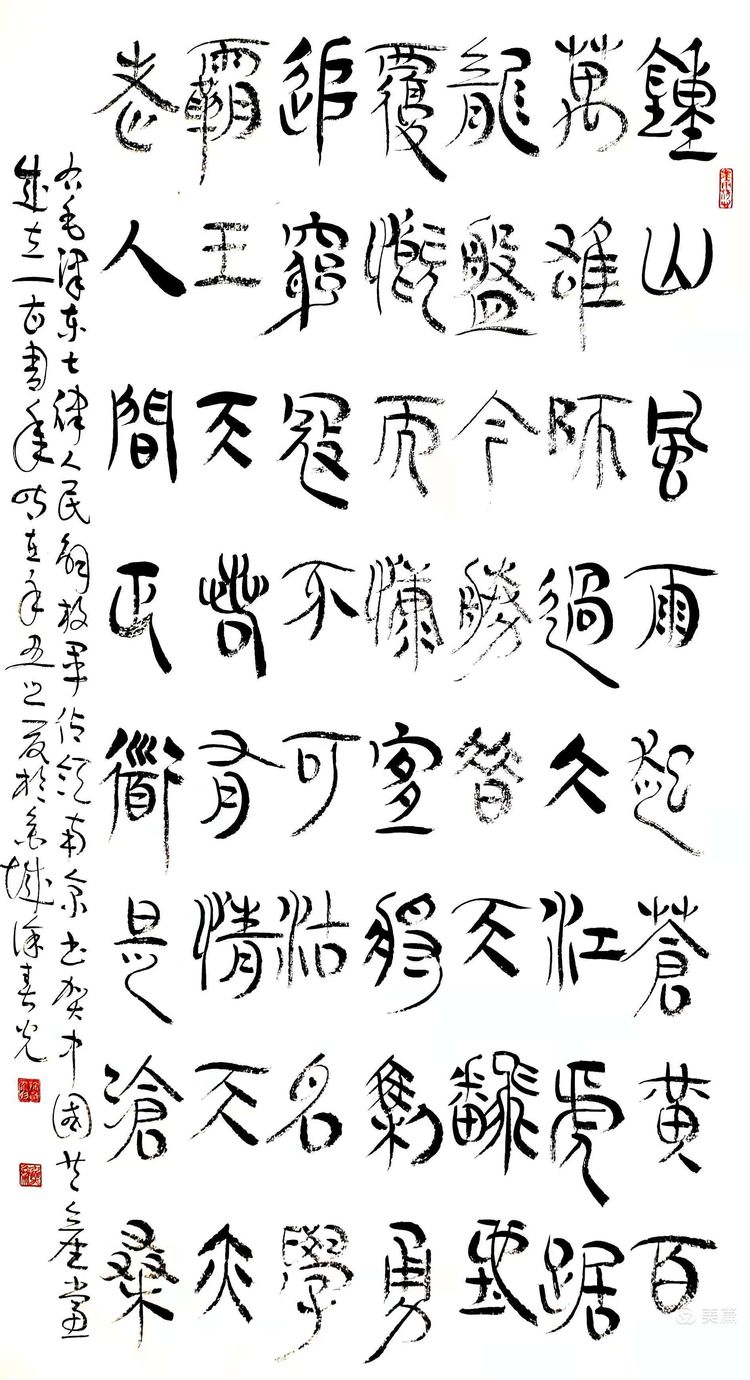 鍾山風雨起蒼黃百
萬雄師過大江虎踞
龍盤今勝昔天翻地
覆慨而慷宜將剩勇
追窮寇不可沽名學
霸王天若有情天亦
老人間正道是滄桑
右毛澤東七律人民解放軍佔領南京书贺中國共產黨
成立一百周年时在辛丑之夏於城徐春光
美篇